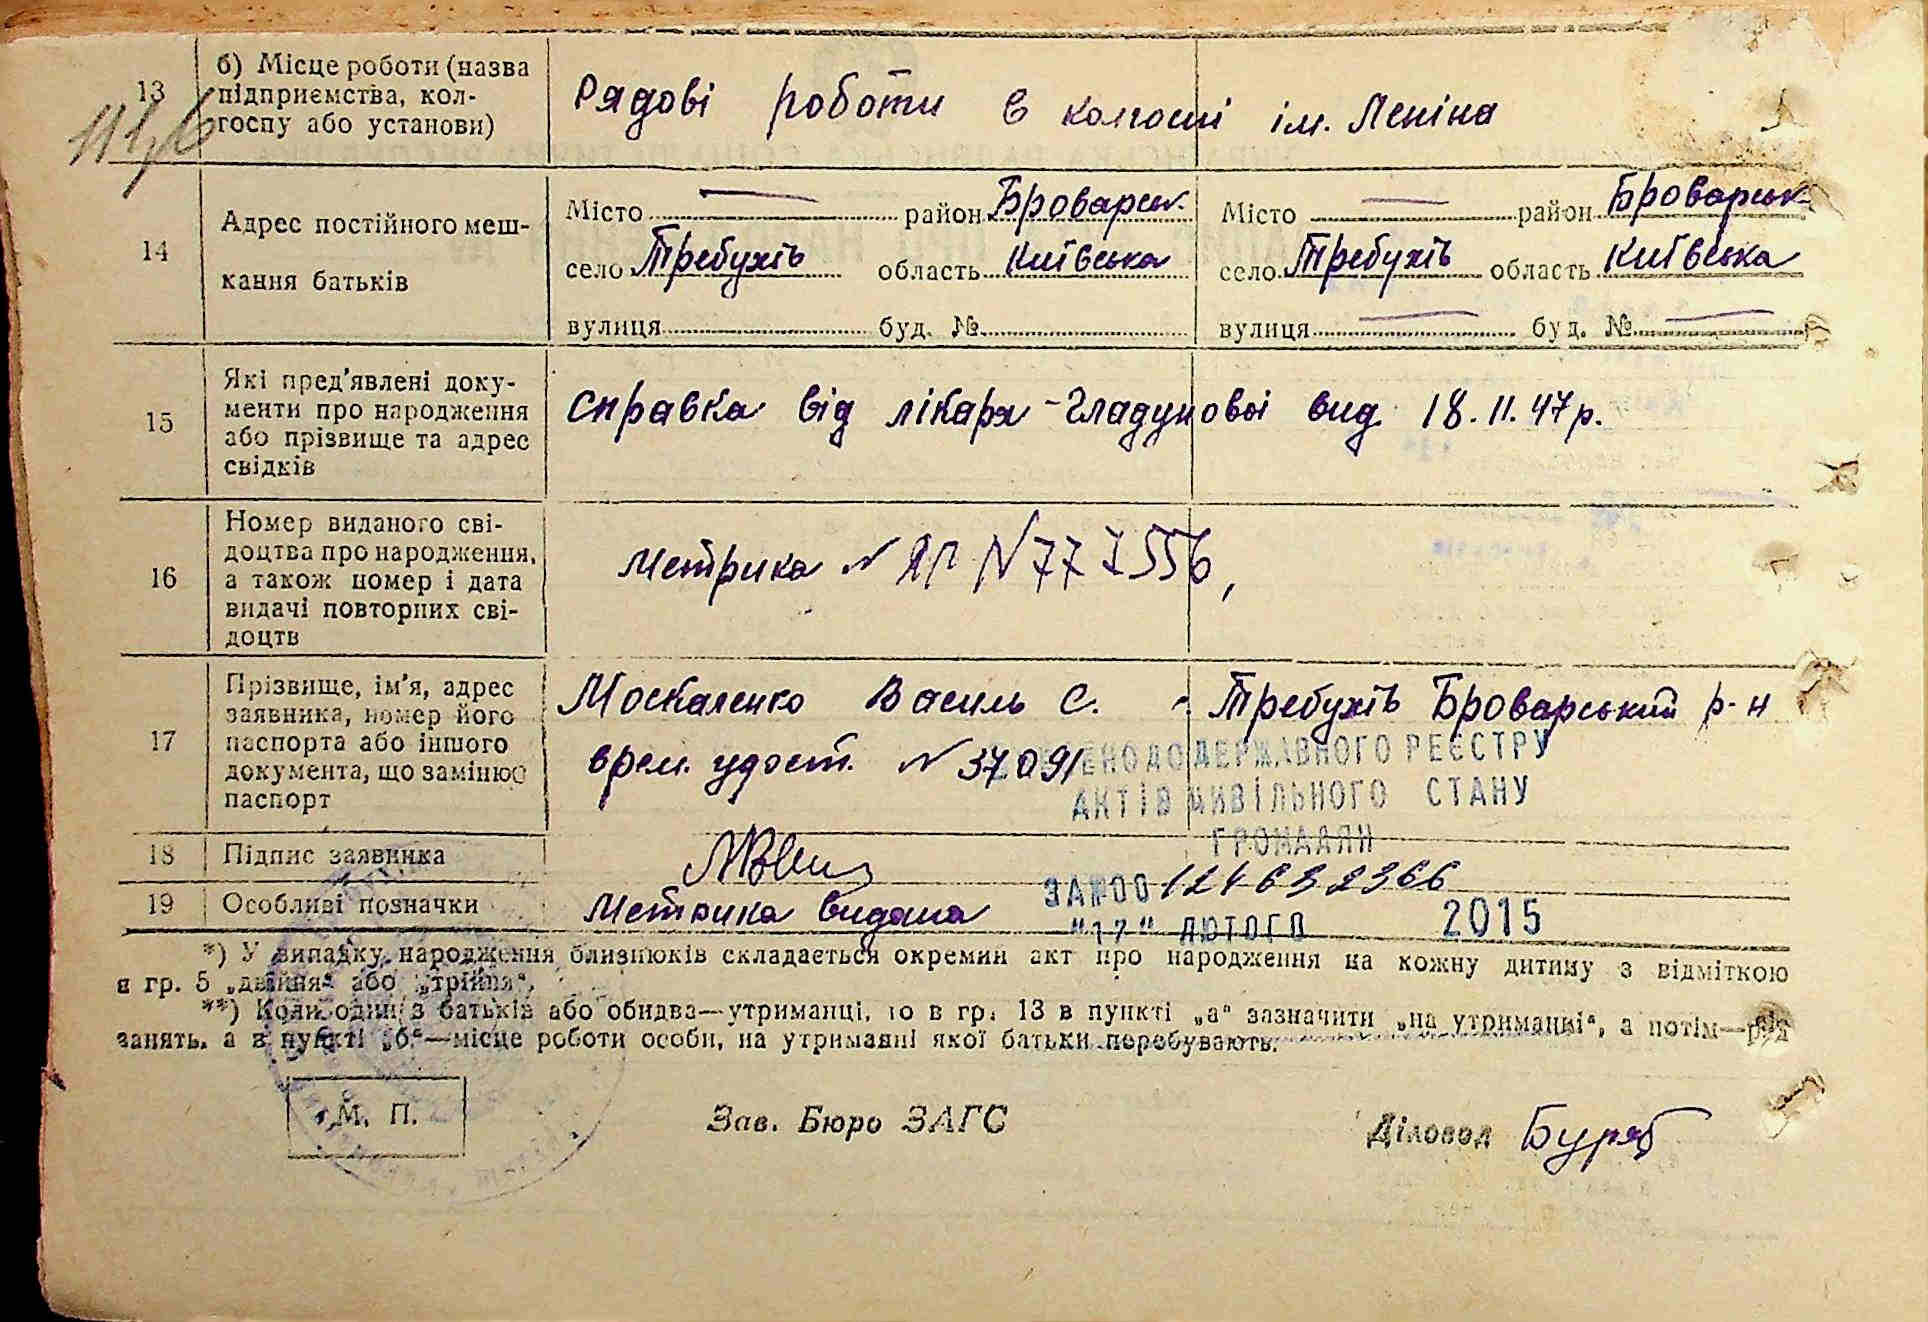 13 б) Місце роботи (назва
підприємства, кол-
госпу або установи)
Рядові роботи в колгоспі ім. Леніна
14 Адрес постійного меш-
кання батьків
Місто район Броварськ. Місто район Броварськ.
село Требухів область Київська село Требухів область Київська
вулиця буд. № вулиця буд. №
15 Які пред'явлені доку-
менти про народження
або прізвище та адрес
свідків
Справка від лікаря - Гладунової вид. 18.11.47р.
16 Номер виданого сві-
доцтва про народження,
а також номер і дата
видачі повторних сві-
доцтв
Метрика № ЯП N 777556,
17 Прізвище, ім'я, адрес
заявника, номер його
паспорта або іншого
документа, що замінює
паспорт
Москаленко Василь С. - Требухів Броварський р-н
врем. удост. № 37091
ДО ДЕРЖАВНОГО РЕЄСТРУ
АКТІВ ЦИВІЛЬНОГО СТАНУ
ГРОМАДЯН
18 Підпис заявника
ЗА №00124632366
19 Особливі позначки Метрика видана
"17" ЛЮТОГО 2015
*) У випадку народження близнюків складається окремий акт про народження на кожну дитину з відміткою
в гр. 5 „двійня“ або „трійня“.
**) Коли один з батьків або обидва—утриманці, то в гр. 13 в пункті „а“ зазначити „на утриманні“, а потім—рід
занять, а в пункті „б“—місце роботи особи, на утриманні якої батьки перебувають.
М. П. Зав. Бюро ЗАГС Діловод